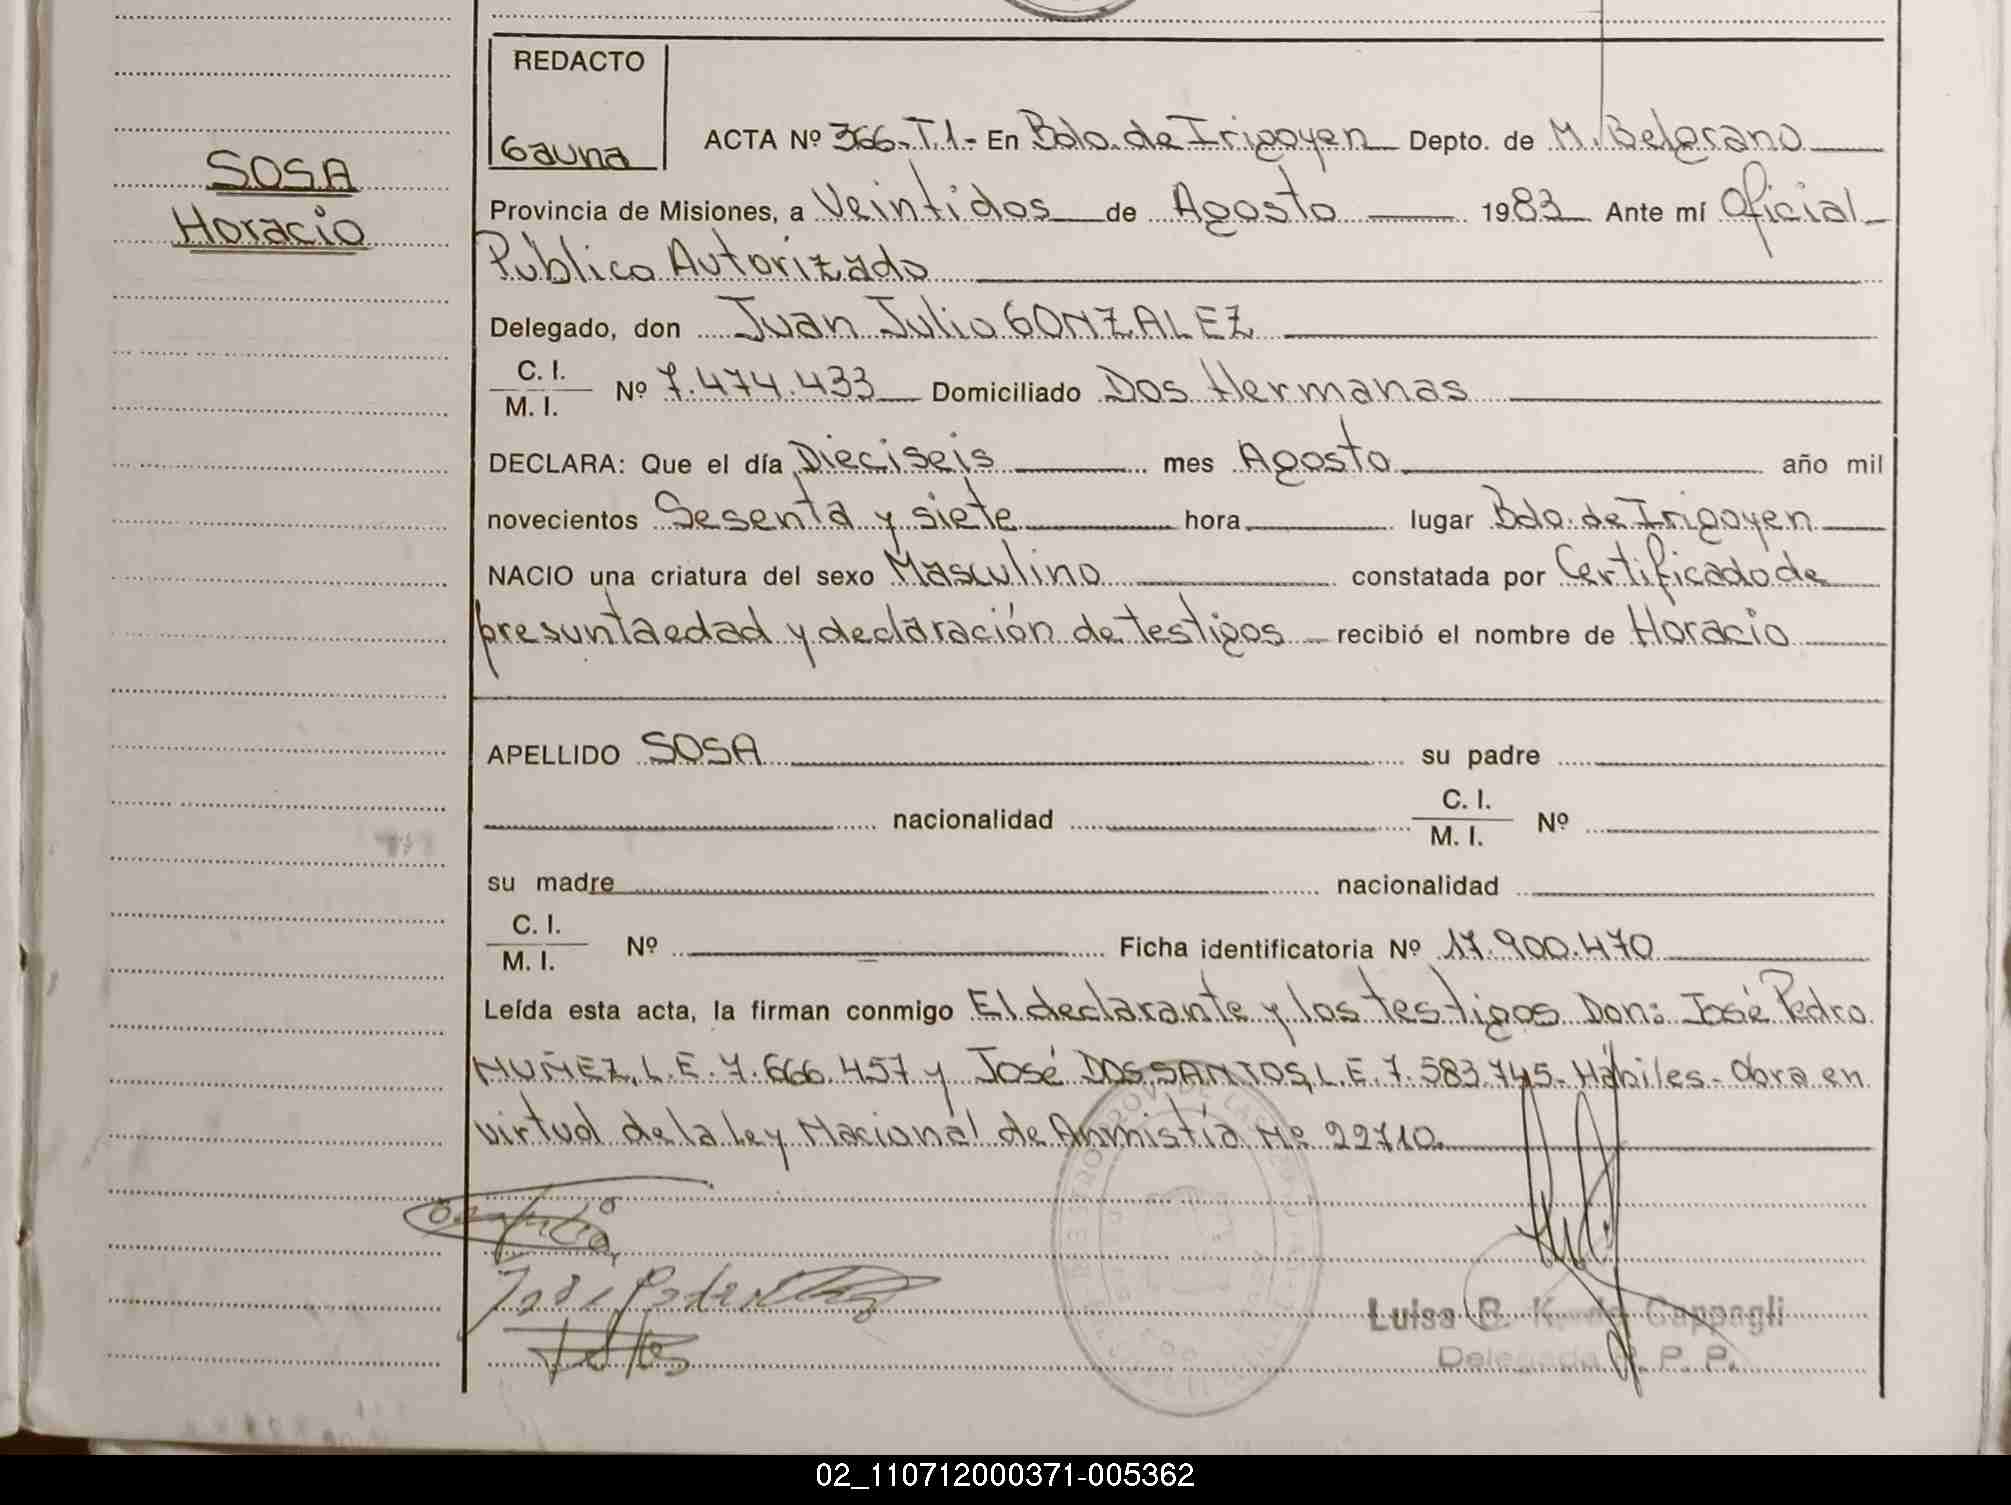 REDACTO
Gauna
SOSA
Horacio
ACTA Nº 366-T.1- En Bdo. de Irigoyen Depto. de M. Belgrano
Provincia de Misiones, a Veintidos de Agosto 1983 Ante mí Oficial
Público Autorizado
Delegado, don Juan Julio GONZALEZ
C. I.
M. I. Nº 7.474.433 Domiciliado Dos Hermanas
DECLARA: Que el día Dieciseis mes Agosto año mil
novecientos Sesenta y siete hora lugar Bdo. de Irigoyen
NACIO una criatura del sexo Masculino constatada por Certificado de
presunta edad y declaración de testigos recibió el nombre de Horacio
APELLIDO SOSA su padre
nacionalidad C. I.
M. I. Nº
su madre nacionalidad
C. I.
M. I. Nº Ficha identificatoria Nº 17.900.470
Leída esta acta, la firman conmigo El declarante y los testigos Don: José Pedro
MUÑEZ, L.E. 7.666.457 y José DOS SANTOS, L.E. 7.583.745- Hábiles- Obra en
virtud de la Ley Nacional de Anmistía Nº 22710.
Luisa de Cappagli
Delegada R. P. P.
02_110712000371-005362